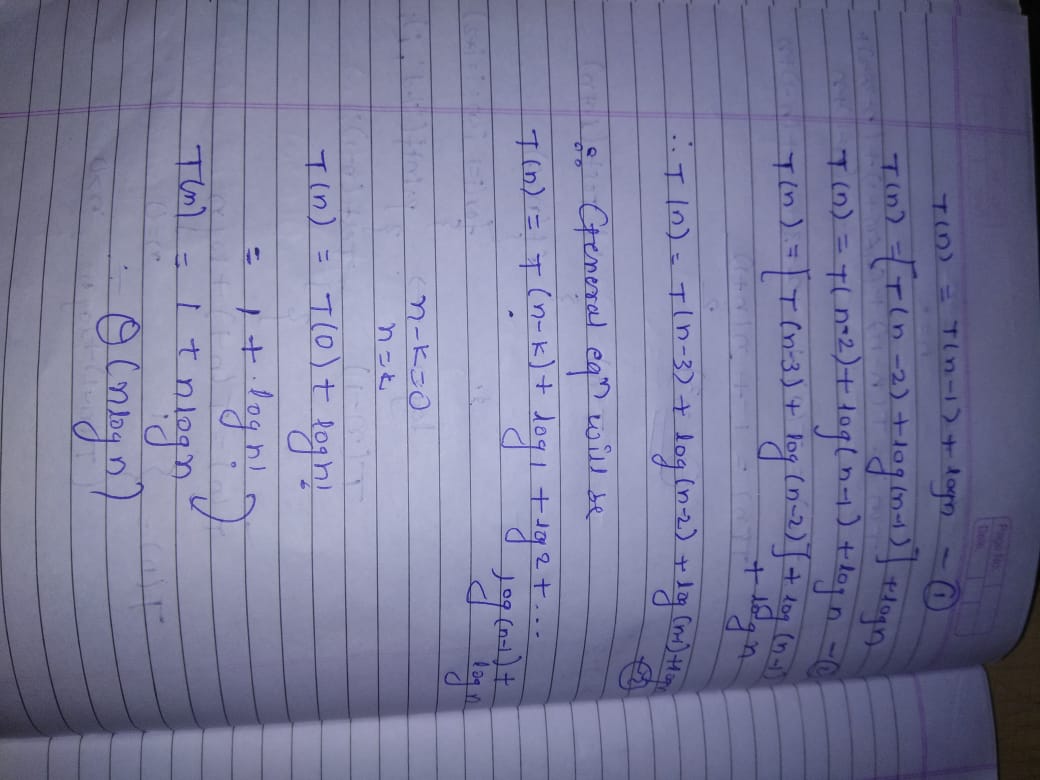 Page No.
Date
T(n) = T(n-1) + logn - ①
T(n) = [T(n-2) + log(n-1)] + logn
T(n) = T(n-2) + log(n-1) + log n - ②
T(n) = [T(n-3) + log(n-2)] + log(n-1)
+ log n
∴ T(n) = T(n-3) + log(n-2) + log(n-1) + log
General eqⁿ will be
T(n) = T(n-k) + log1 + log2 + ...
log(n-1) +
log n
n-k=0
n=k
T(n) = T(0) + logn!
= 1 + logn!
T(n) = 1 + nlogn
∴ θ(nlogn)